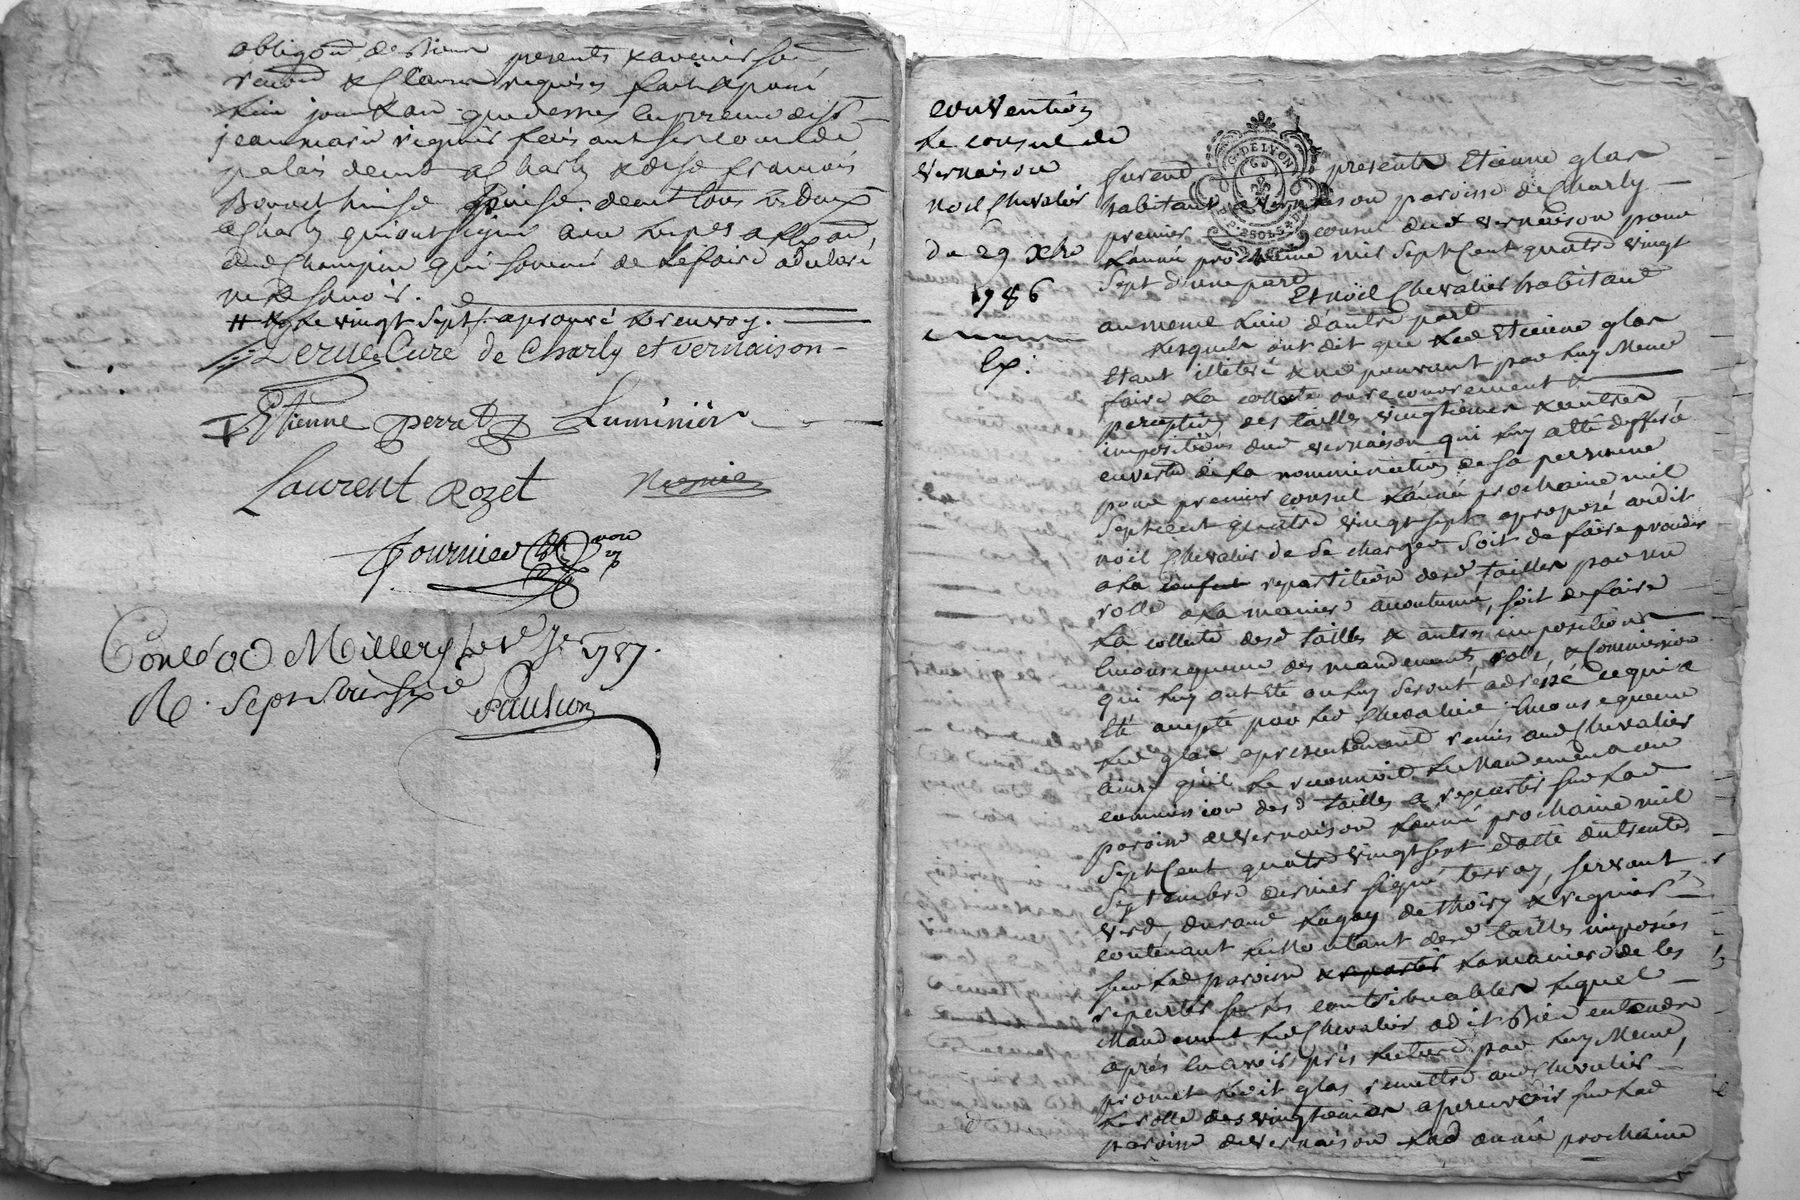 obligaon de biens presents & avenir so
renon & Clauses requises fait & passé
lieu jour & an que dessus en presence de sr
jean marie regnier faisant sa cour de
palais demt a Charly & de sr francois
Bonnet huise demt tous deux
a Charly qui ont signé avec
dud Champin qui sommé de le faire a declaré
ne le savoir.
le vingt sept. aprouvé le renvoy.
Curé de Charly et vernaison
Etienne perret Luminier
Laurent Rozet
fournier nore
Conlé a Millery le 1er Jer 1787.
R. Sept Sols six d
Paulson
convention
Le consul de
vernaison
noel Chevalier
du 29 Xbre
1786
Ex:
G. DE LYON
furent presents Etienne glas
habitant a vernaison paroisse de Charly
premier consul dud vernaison pour
L'année prochaine mil sept Cent quatre vingt
sept d'une part
Et noël Chevalier habitant
au meme lieu d'autre part
Lesquels ont dit que Led Etienne glas
Etant illiteré & ne pouvant par luy Meme
faire La collecte ou recouvrement &
perception des tailles vingtiemes & autres
impositions dud vernaison qui luy a été defferé
en vertu de La nommination de sa personne
pour premier consul L'année prochaine mil
Sept cent quatre vingt sept a proposé audit
noël Chevalier de Se charger soit de faire proceder
a La repartition desd tailles par un
rolle a La maniere accoutumé, soit de faire
La collecte desd tailles & autres impositions
En consequence des mandements, rolle, & Commission
qui luy ont Eté ou luy Seront adressé Ce qui a
Eté accepté par Led Chevalier. En consequence
Led glas a presentement remis aud Chevalier
ainsy qu'il Le reconnoit Le Mandement ou
commission desd tailles a repartir sur Lad
paroisse de vernaison L'année prochaine mil
Sept Cent quatre vingt sept datté du trente
Septembre dernier signé terray, servant
durand Lagay de thoiry & regnier
contenant Le Montant desd tailles imposées
sur Lad paroisse & repartir La maniere de les
repartir sur les contribuables Lequel
Mandement Led Chevalier a dit Bien entendre
après En avoir pris Lecture par luy Meme,
promet Ledit glas remettre aud Chevalier
Le rolle des vingtiemes a percevoir sur Lad
paroisse de vernaison Lad année prochaine